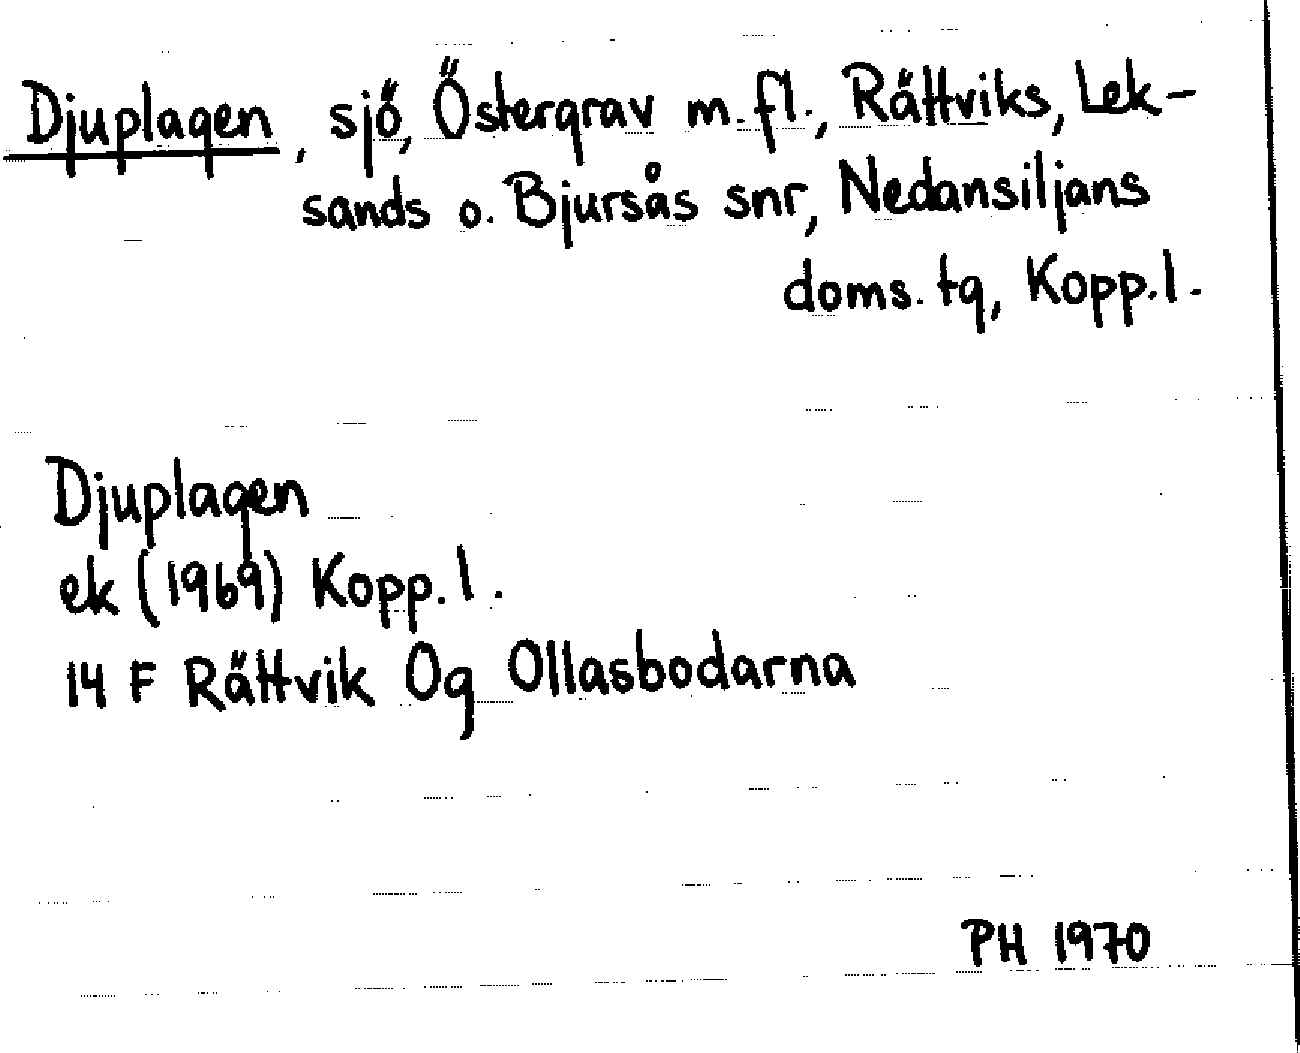 Djuplagen, sjö, Östergrav m.fl., Rättviks, Lek-
sands o. Bjursås snr, Nedansiljans
doms. tg, Kopp.l.
Djuplagen
ek (1969) Kopp.l.
14 F Rättvik Og Ollasbodarna
PH 1970